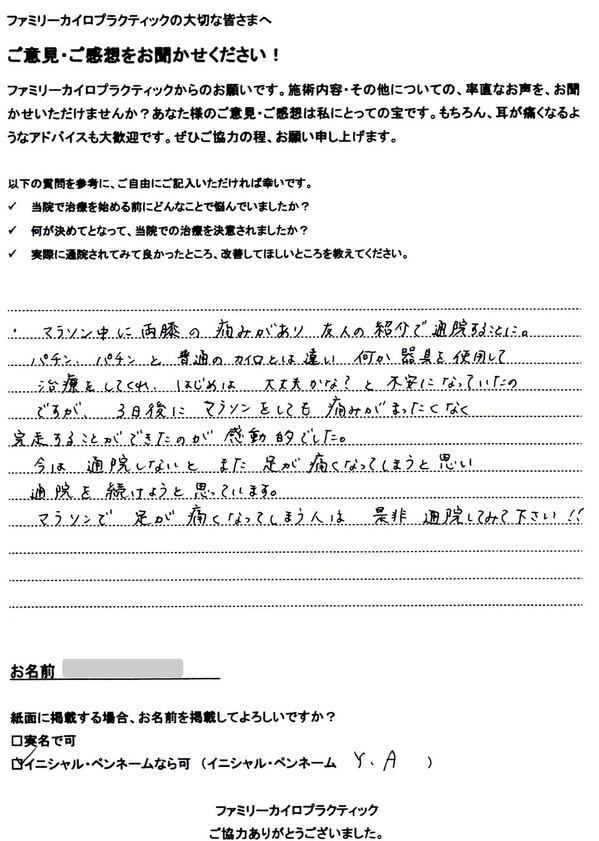 ファミリーカイロプラクティックの大切な皆さまへ
ご意見・ご感想をお聞かせください！
ファミリーカイロプラクティックからのお願いです。施術内容・その他についての、率直なお声を、お聞
かせいただけませんか？あなた様のご意見・ご感想は私にとっての宝です。もちろん、耳が痛くなるよ
うなアドバイスも大歓迎です。ぜひご協力の程、お願い申し上げます。
以下の質問を参考に、ご自由にご記入いただければ幸いです。
✓ 当院で治療を始める前にどんなことで悩んでいましたか？
✓ 何が決めてとなって、当院での治療を決意されましたか？
✓ 実際に通院されてみて良かったところ、改善してほしいところを教えてください。
・ マラソン中に両膝の痛みがあり 友人の紹介で通院することに。
パチン、パチンと普通のカイロとは違い 何か器具を使用して
治療をしてくれ、はじめは 大丈夫かな？と不安になっていたの
ですが、3日後にマラソンをしても痛みがまったくなく
完走することができたのが感動的でした。
今は通院しないとまた足が痛くなってしまうと思い
通院を続けようと思っています。
マラソンで足が痛くなってしまう人は 是非通院してみて下さい!!
お名前
紙面に掲載する場合、お名前を掲載してよろしいですか？
□実名で可
☑イニシャル・ペンネームなら可 （イニシャル・ペンネーム Y.A ）
ファミリーカイロプラクティック
ご協力ありがとうございました。